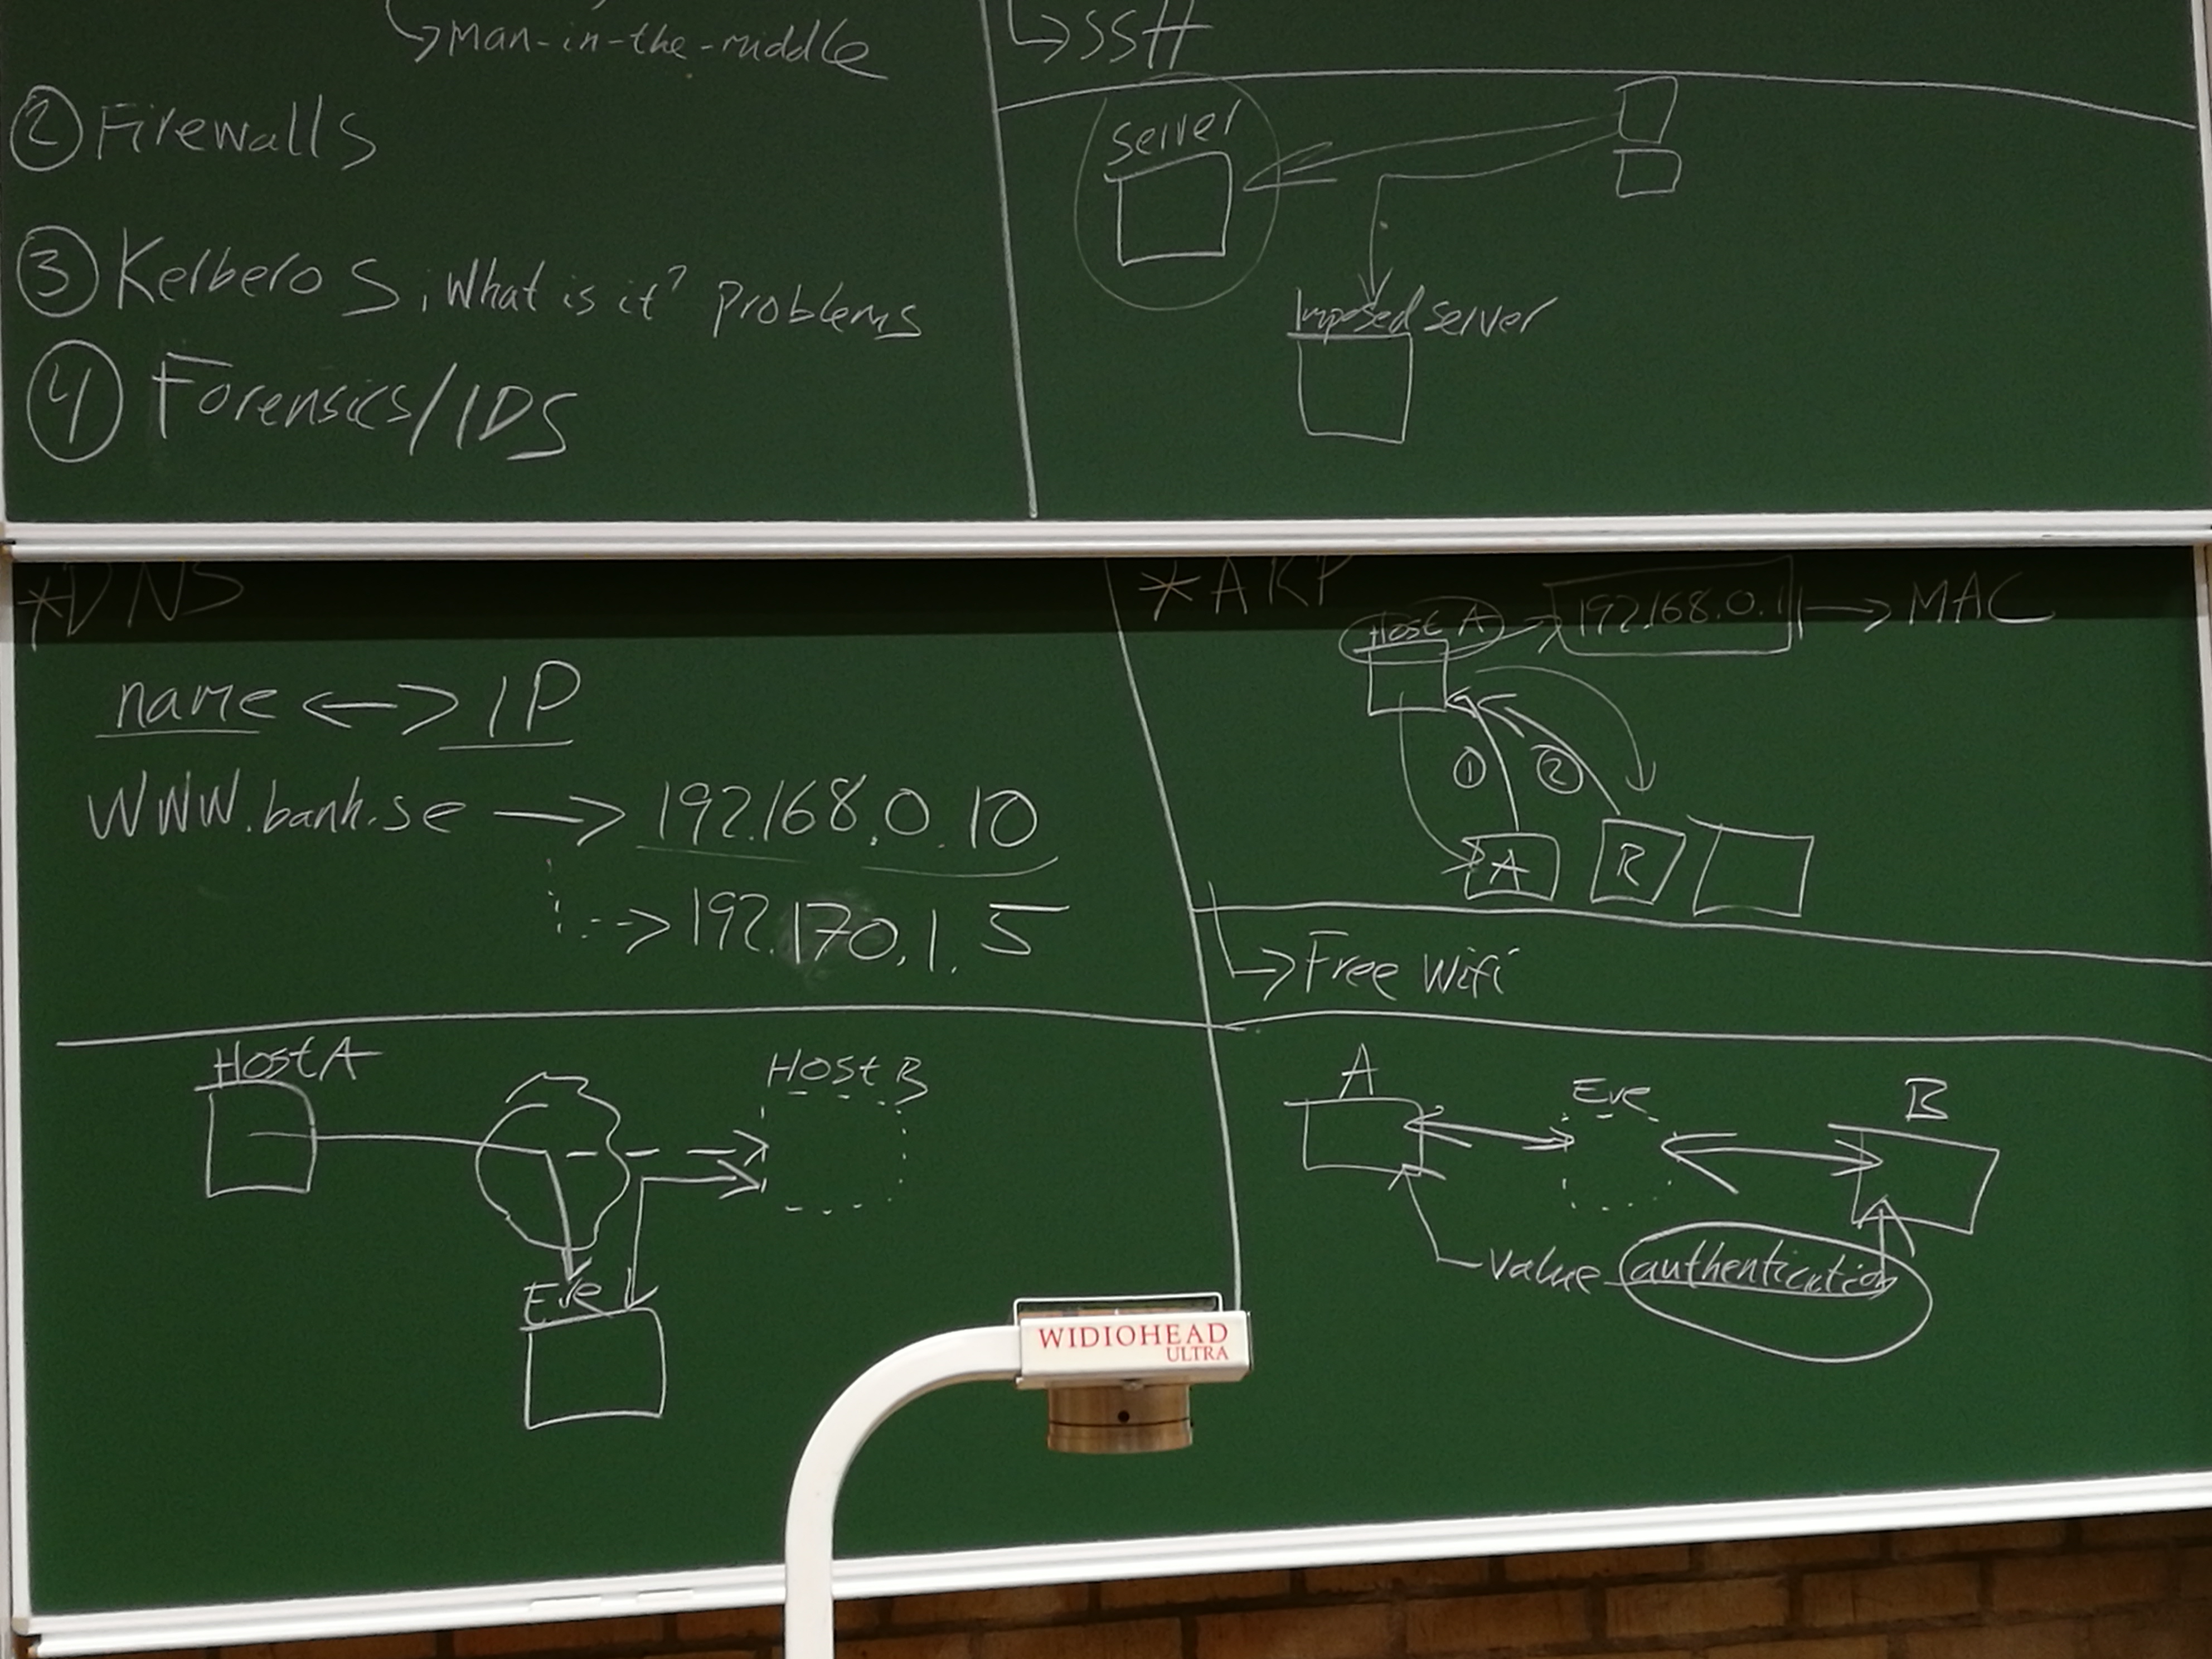 ↳man-in-the-middle
② Firewalls
③ Kerberos, What is it? Problems
④ Forensics/IDS
↳SSH
Server
Imposed server
*DNS
name <-> IP
WWW.bank.se → 192.168.0.10
⇢ 192.170.1.5
*ARP
Host A → 192.168.0.1 → MAC
① ②
A R
↳ Free Wifi
Host A
Host B
Eve
A Eve B
Value authentication
WIDIOHEAD
ULTRA